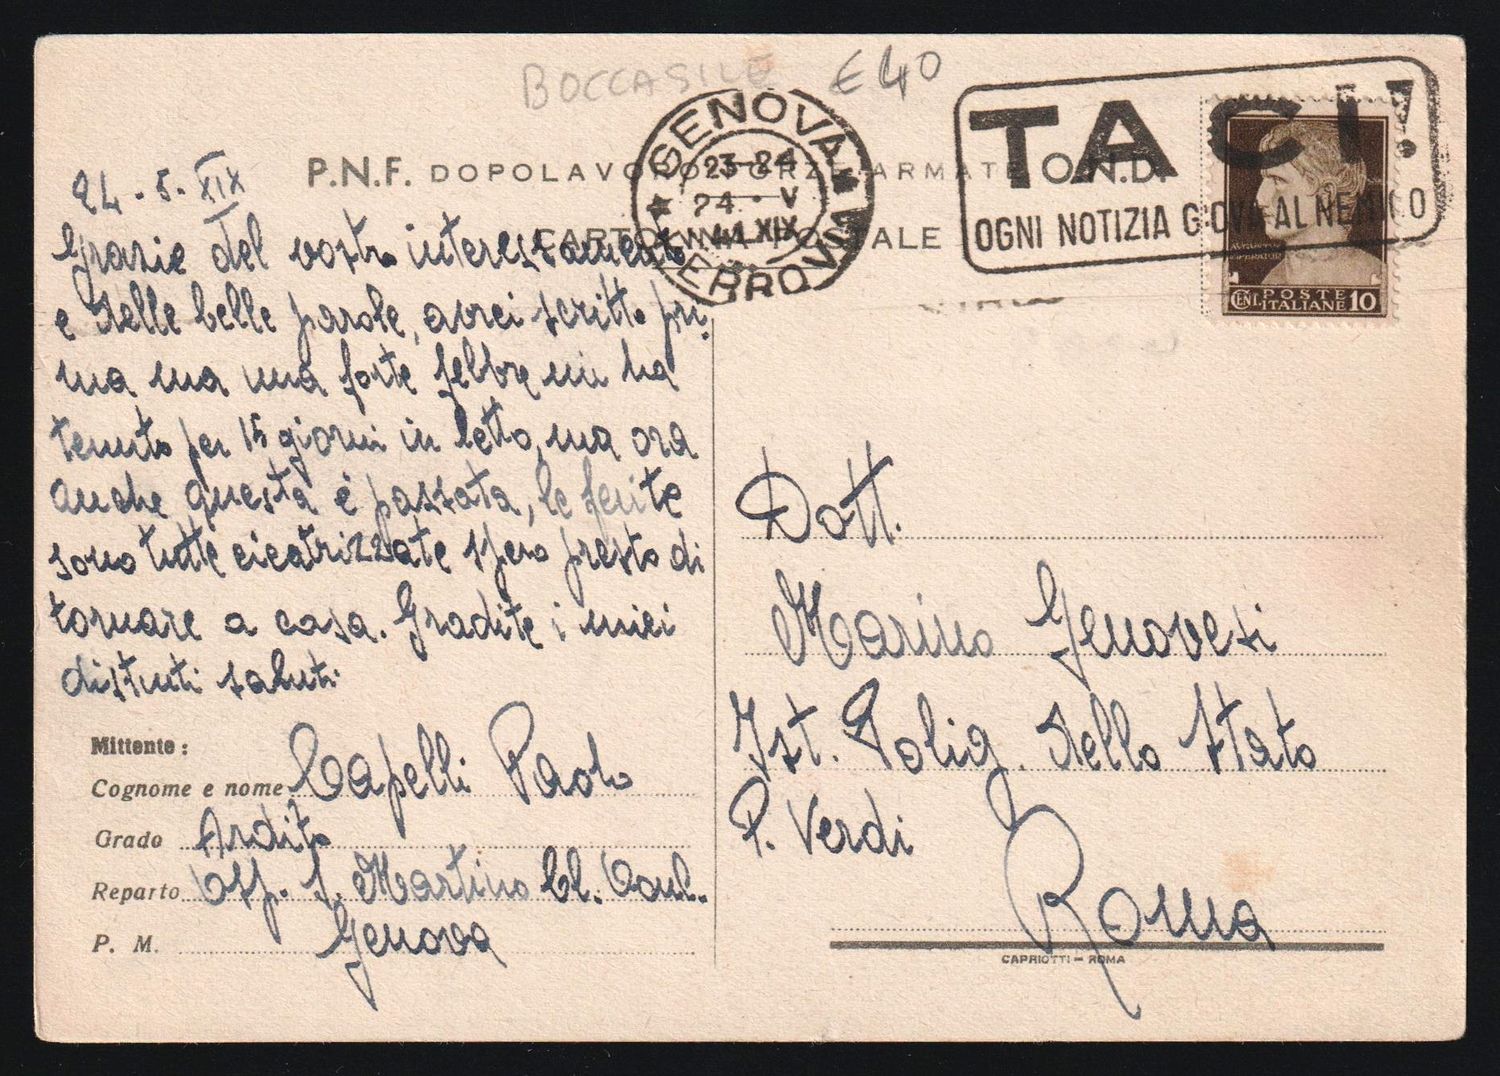 BOCCASILE € 40
P.N.F. DOPOLAVORO FORZE ARMATE O.N.D.
CARTOLINA POSTALE
GENOVA FERROVIA
23-24
24 · V
41 XIX
TACI!
OGNI NOTIZIA GIOVA AL NEMICO
POSTE ITALIANE
CENT. 10
24 - 5 - XIX
Grazie del vostro interessamento
e delle belle parole, avrei scritto pri-
ma ma una forte febbre mi ha
tenuto per 15 giorni in letto, ma ora
anche questa è passata, le ferite
sono tutte cicatrizzate spero presto di
tornare a casa. Gradite i miei
distinti saluti
Mittente:
Cognome e nome Capelli Paolo
Grado Ardito
Reparto Osp. S. Martino Cl.
P. M. Genova
Dott.
Marino Genovesi
Ist. Polig. dello Stato
P. Verdi
Roma
CAPRIOTTI - ROMA